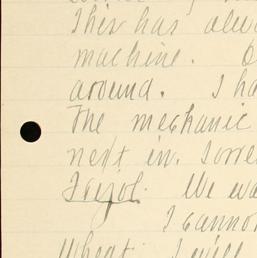 This has alwa
machine.
around. I ha
The mechanic
next in.
We wa
I cannot
Wheat. I will